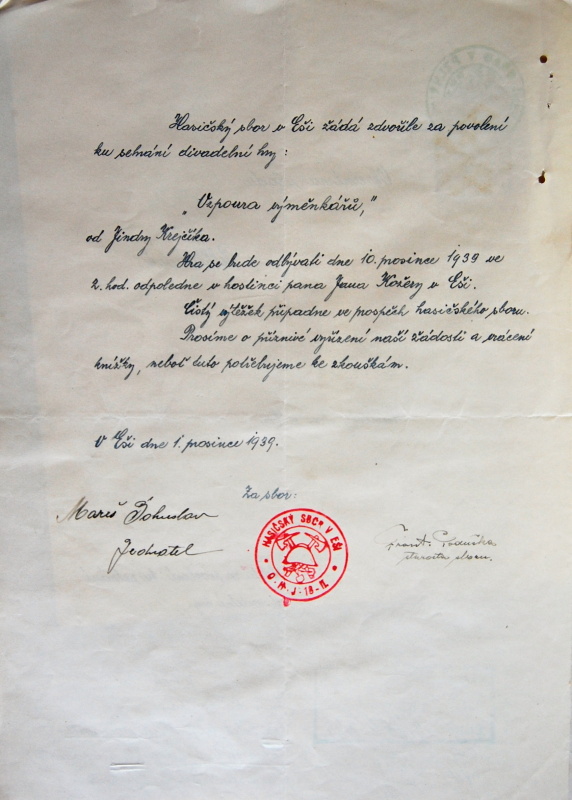 Hasičský sbor v Eši žádá zdvořile za povolení
ku sehrání divadelní hry:
„Vzpoura výměnkářů,"
od Jindry Krejčíka.
Hra se bude odbývati dne 10. prosince 1939 ve
2. hod. odpoledne v hostinci pana Jana Kožery v Eši.
Čistý výtěžek připadne ve prospěch hasičského sboru.
Prosíme o příznivé vyřízení naší žádosti a vrácení
knížky, neboť tuto potřebujeme ke zkouškám.
V Eši dne 1. prosince 1939.
Za sbor:
Mareš Bohuslav
Jednatel
HASIČSKÝ SBOR V EŠI
O. H. J. 18-II.
Frant.
starosta sboru.